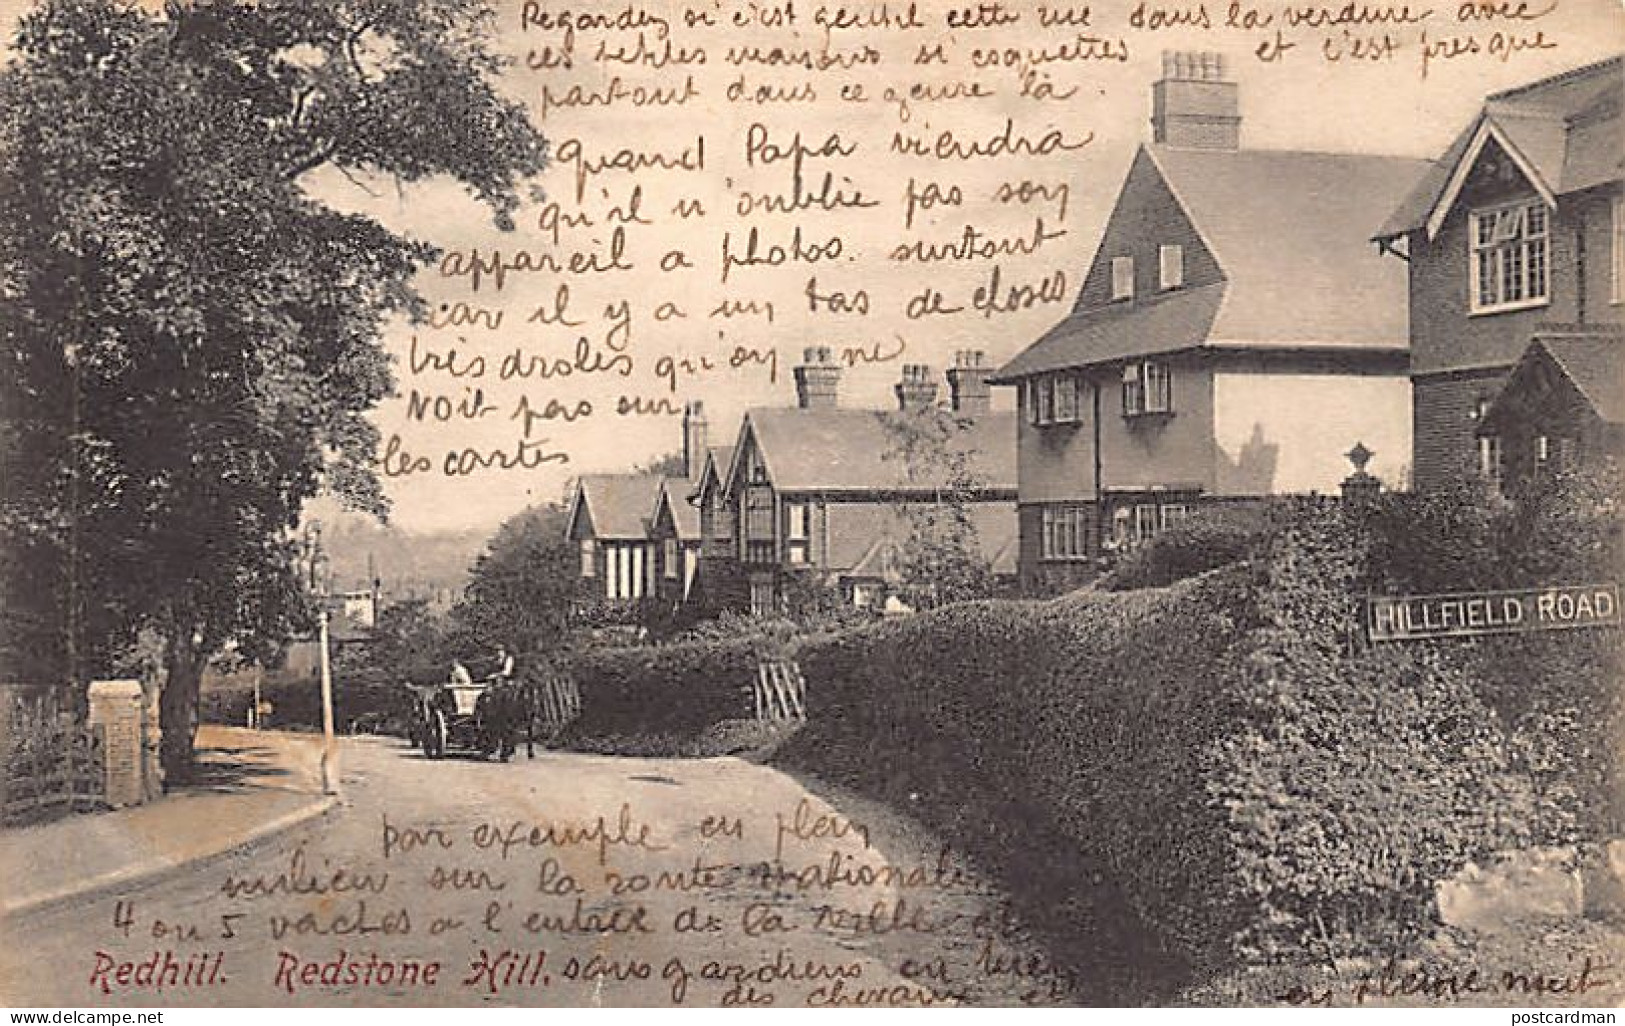 Regardez si c'est gentil cette vue dans la verdure avec
ces petites maisons si coquettes et c'est presque
partout dans ce genre là.
Quand Papa viendra
qu'il n'oublie pas son
appareil a photos. surtout
car il y a un tas de choses
très droles qu'on ne
voit pas sur
les cartes
HILLFIELD ROAD
par exemple en plein
milieu sur la route nationale
4 ou 5 vaches a l'entrée de la ville et
Redhill. Redstone Hill. sans gardiens ou bien
des chevaux et en pleine nuit
delcampe.net
postcardman